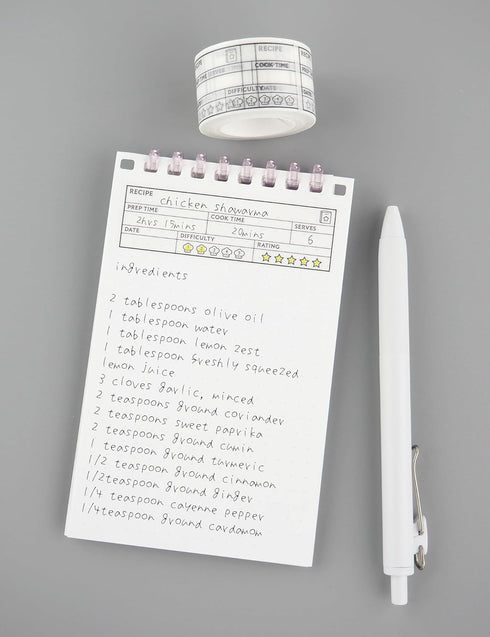 RECIPE
COOK TIME
DIFFICULTY
RECIPE chicken shawarma
PREP TIME COOK TIME SERVES
2hrs 15mins 20mins 6
DATE DIFFICULTY RATING
ingredients
2 tablespoons olive oil
1 tablespoon water
1 tablespoon lemon zest
1 tablespoon freshly squeezed
lemon juice
3 cloves garlic, minced
2 teaspoons ground coriander
2 teaspoons sweet paprika
2 teaspoons ground cumin
1 teaspoon ground turmeric
1/2 teaspoon ground cinnamon
1/2teaspoon ground ginger
1/4 teaspoon cayenne pepper
1/4teaspoon ground cardamom